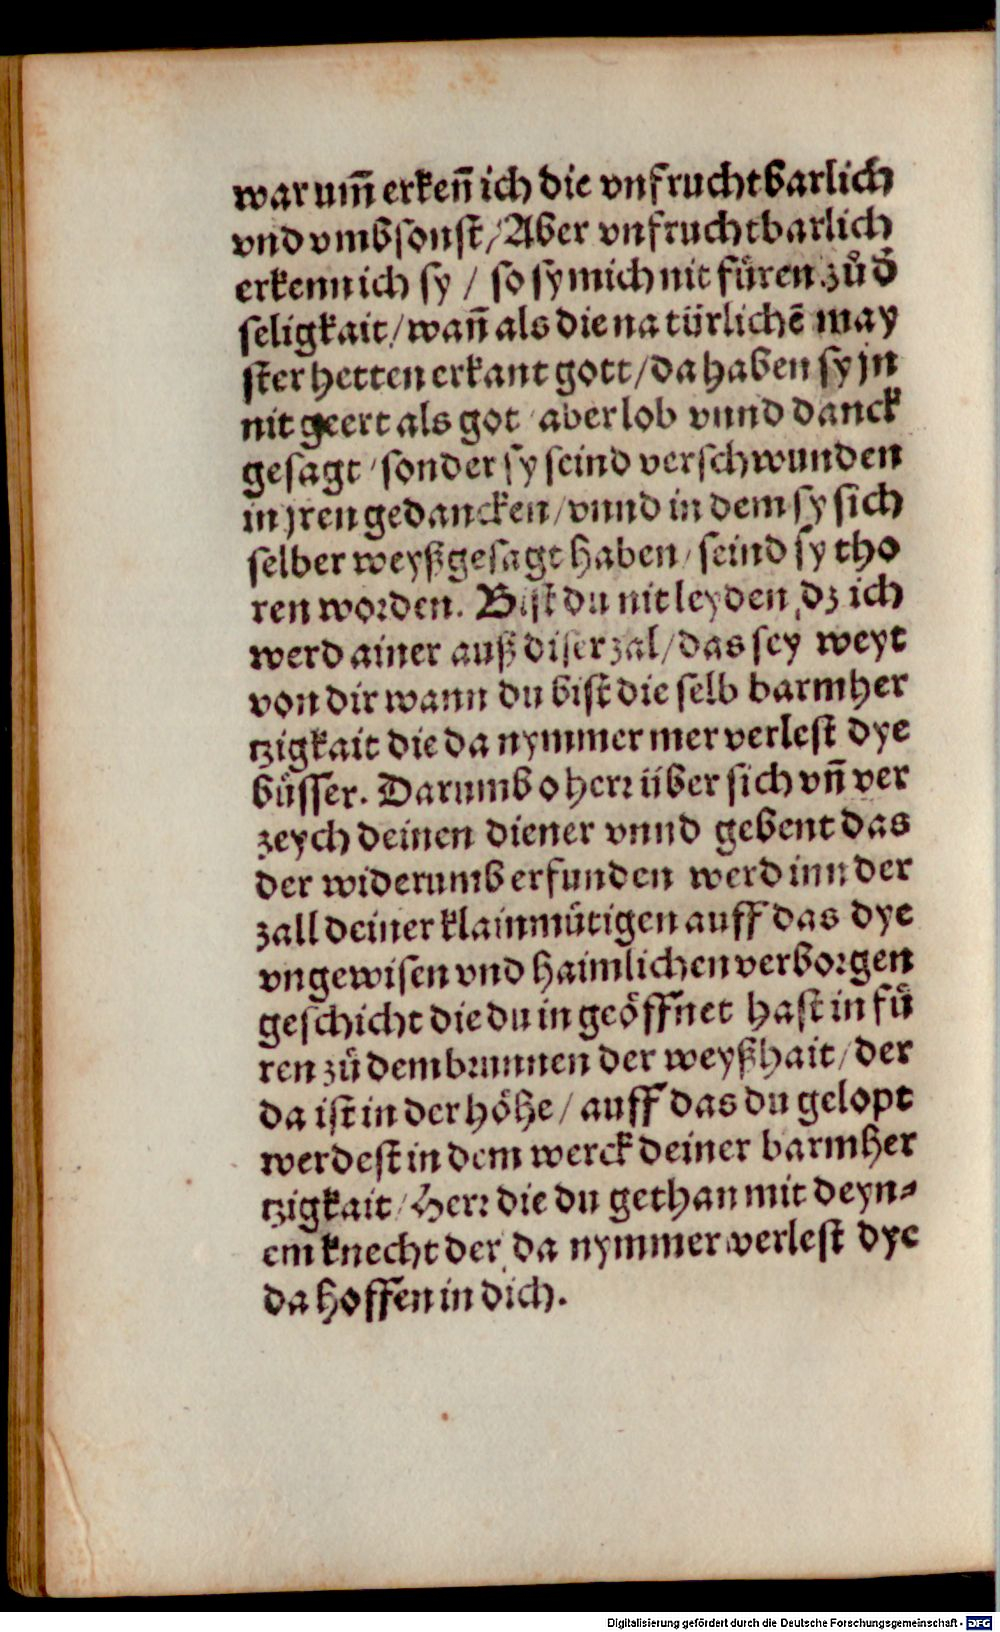 warum̄ erkeñ ich die vnfruchtbarlich
vnd vmbsonst/ Aber vnfruchtbarlich
erkenn ich sy / so sy mich nit füren zů d̄
seligkait/ wañ als die natürlichē may
ster hetten erkant gott/ da haben sy jn
nit geert als got / aber lob vnnd danck
gesagt / sonder sy seind verschwunden
in jren gedancken/ vnnd in dem sy sich
selber weyßgesagt haben/ seind sy tho
ren worden. Bist du nit leyden dz ich
werd ainer auß diser zal/ das sey weyt
von dir wann du bist die selb barmher
tzigkait die da nymmer mer verlest dye
büsser. Darumb o herr über sich vñ ver
zeych deinen diener vnnd gebent das
der widerumb erfunden werd inn der
zall deiner klainmütigen auff das dye
vngewisen vnd haimlichen verborgen
geschicht die du in geöffnet hast in fü
ren zů dem brunnen der weyßhait/ der
da ist in der höhe/ auff das du gelopt
werdest in dem werck deiner barmher
tzigkait/ Herr die du gethan mit deyn⸗
em knecht der da nymmer verlest dye
da hoffen in dich.
Digitalisierung gefördert durch die Deutsche Forschungsgemeinschaft - DFG